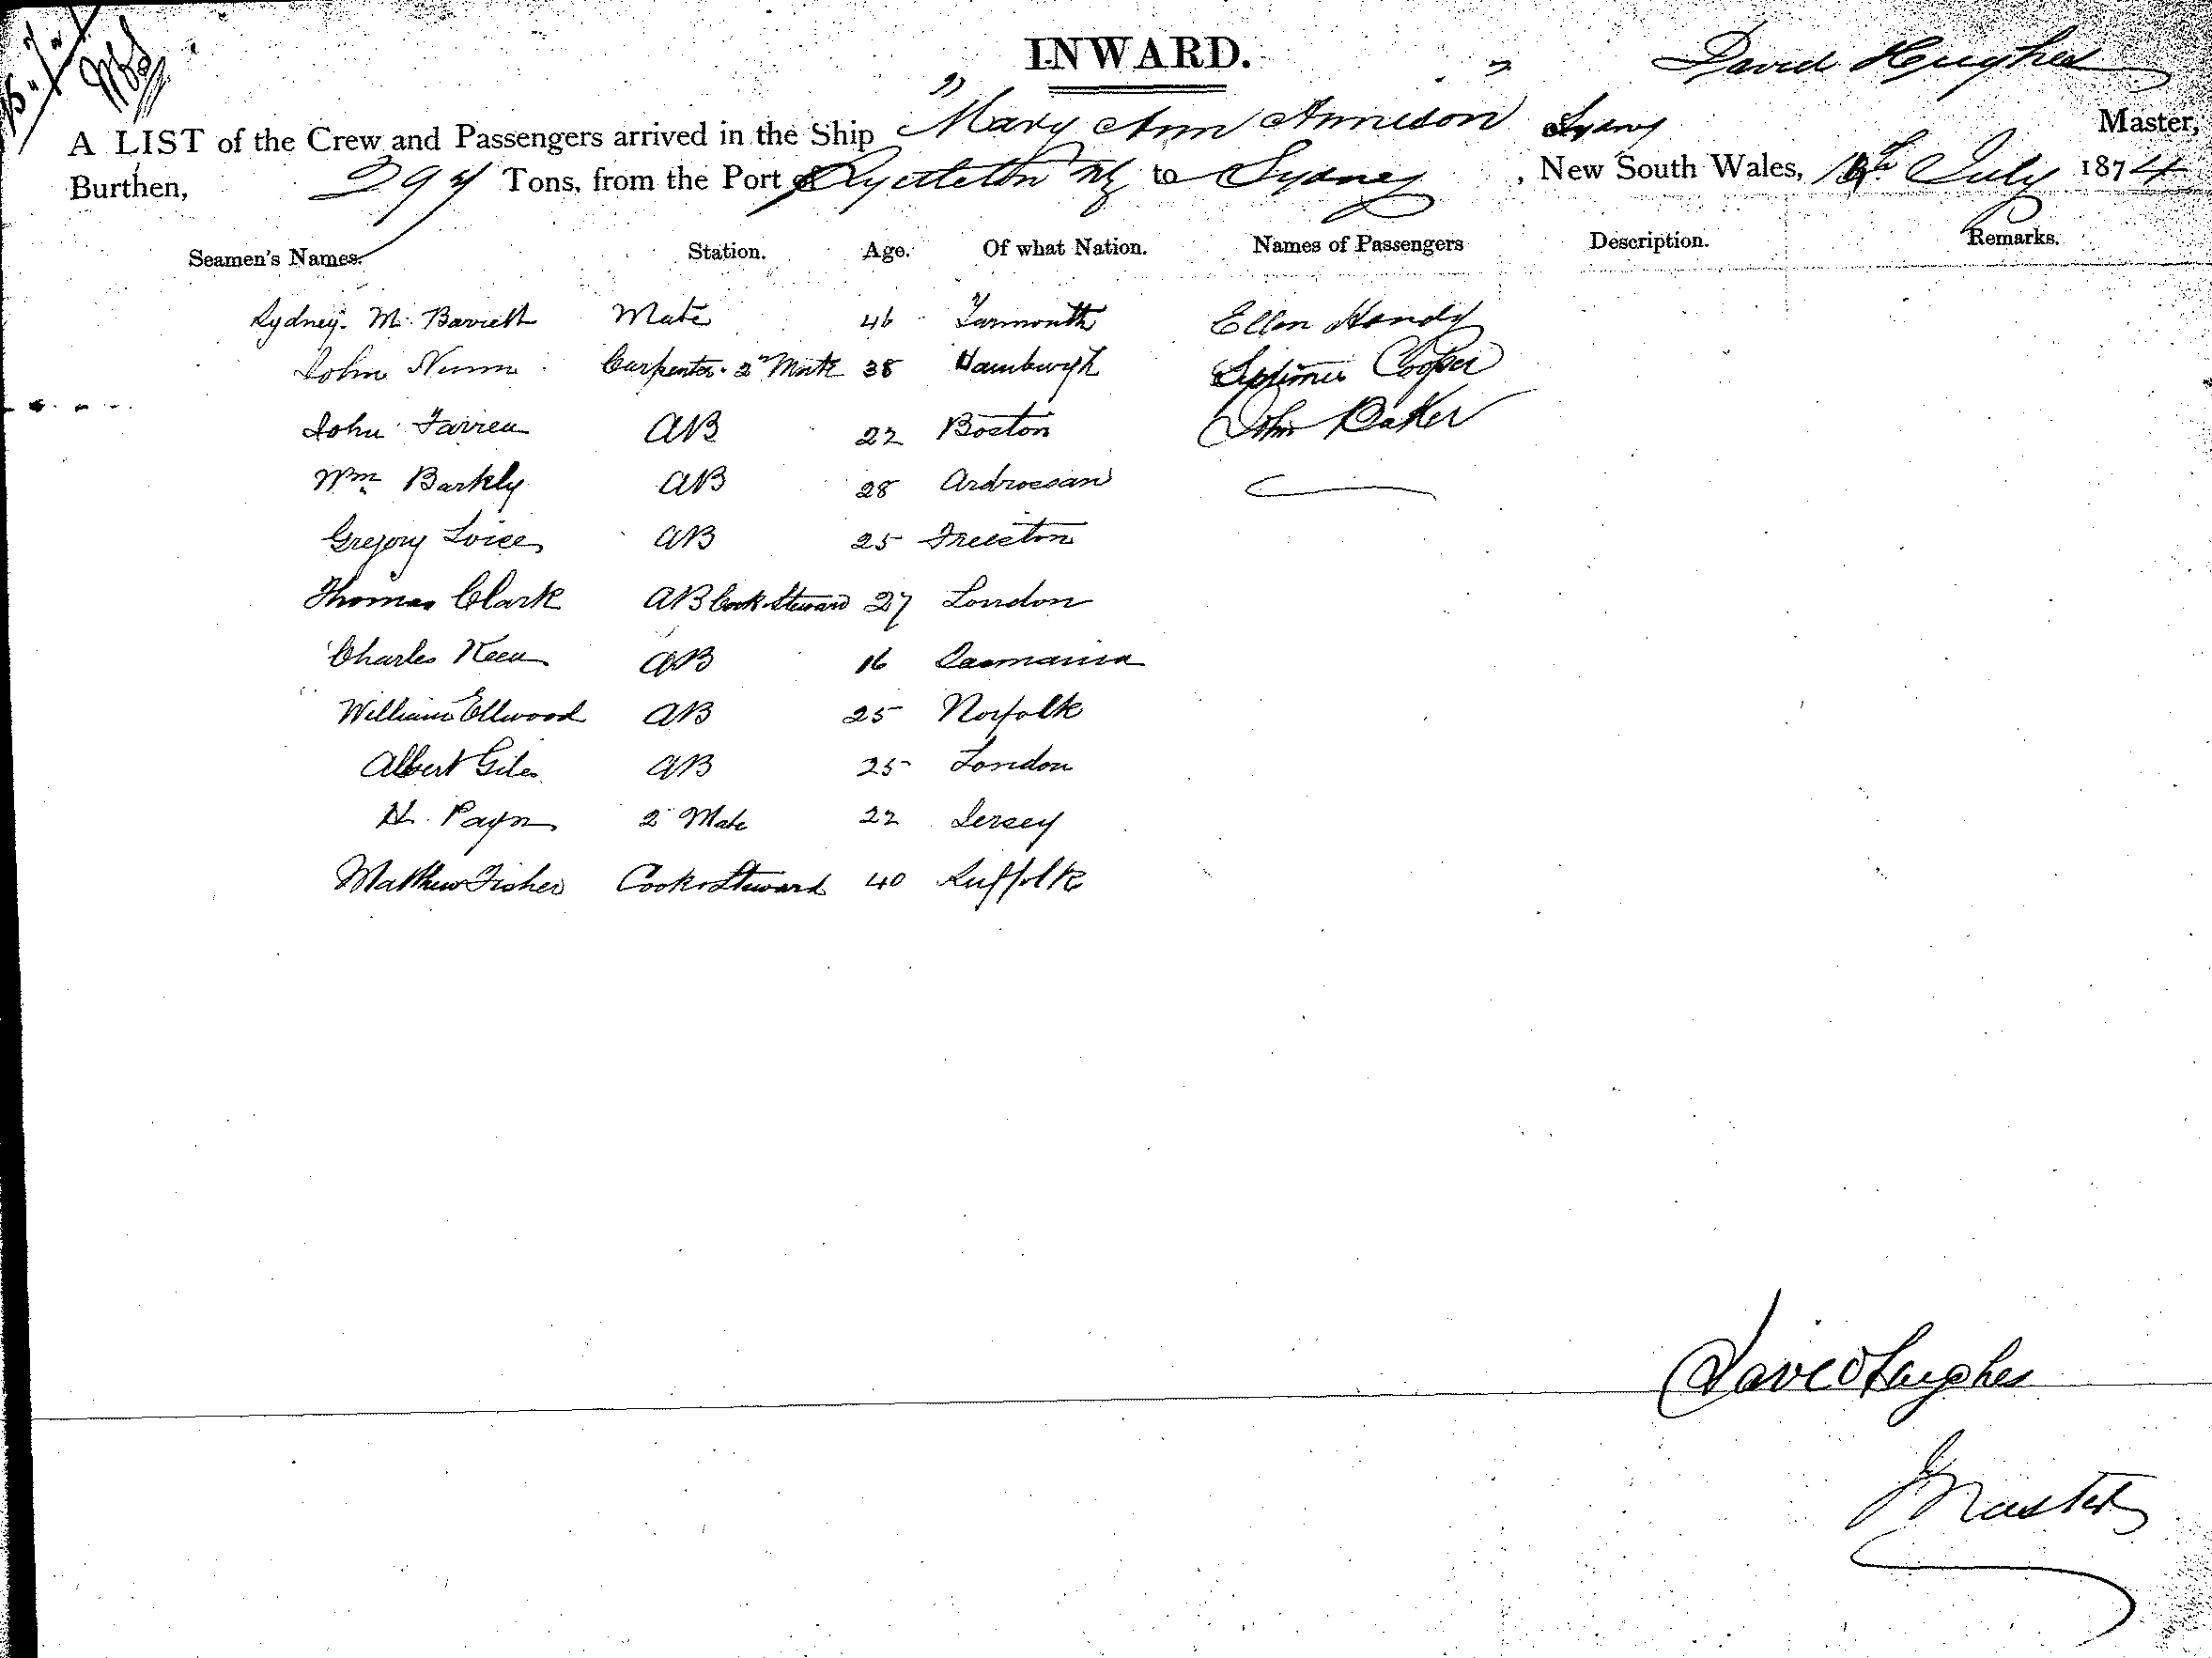 INWARD.
David Hughes
A LIST of the Crew and Passengers arrived in the Ship "Mary Ann Annison" Sydney Master,
Burthen, 294 Tons, from the Port of Lyttelton NZ to Sydney, New South Wales, July 1874
Seamen's Names. Station. Age. Of what Nation. Names of Passengers Description. Remarks.
Sydney M. Barrett Mate 46 Yarmouth Ellen Handy
John Nunn Carpenter 2nd Mate 38 Hamburgh Septimus Cooper
John Farren AB 22 Boston John Baker
Wm Barkly AB 28 Ardrossan
Gregory AB 25
Thomas Clark AB Cook Steward 27 London
Charles Keen AB 16 Tasmania
William Ellwood AB 25 Norfolk
Albert Giles AB 25 London
H. Payn 2 Mate 22 Jersey
Matthew Fisher Cook & Steward 40 Suffolk
David Hughes
Master